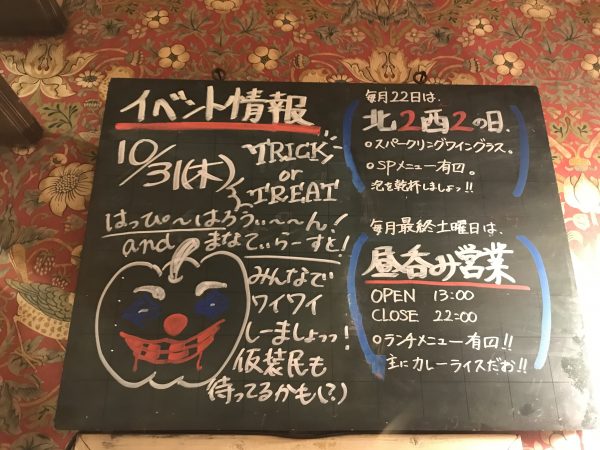 イベント情報
10/31(木)
TRICK
or
TREAT
はっぴ〜はろうぃ〜〜ん!
and まなてぃらーすと!
みんなで
ワイワイ
しーましょっっ!
仮装民も
待ってるかも(?)
毎月22日は、
北2西2の日、
○スパークリングワイングラス。
○SPメニュー有〼。
泡を乾杯しましょっ!!
毎月最終土曜日は、
昼呑み営業
OPEN 13:00
CLOSE 22:00
○ランチメニュー有〼!!
主にカレーライスだお!!